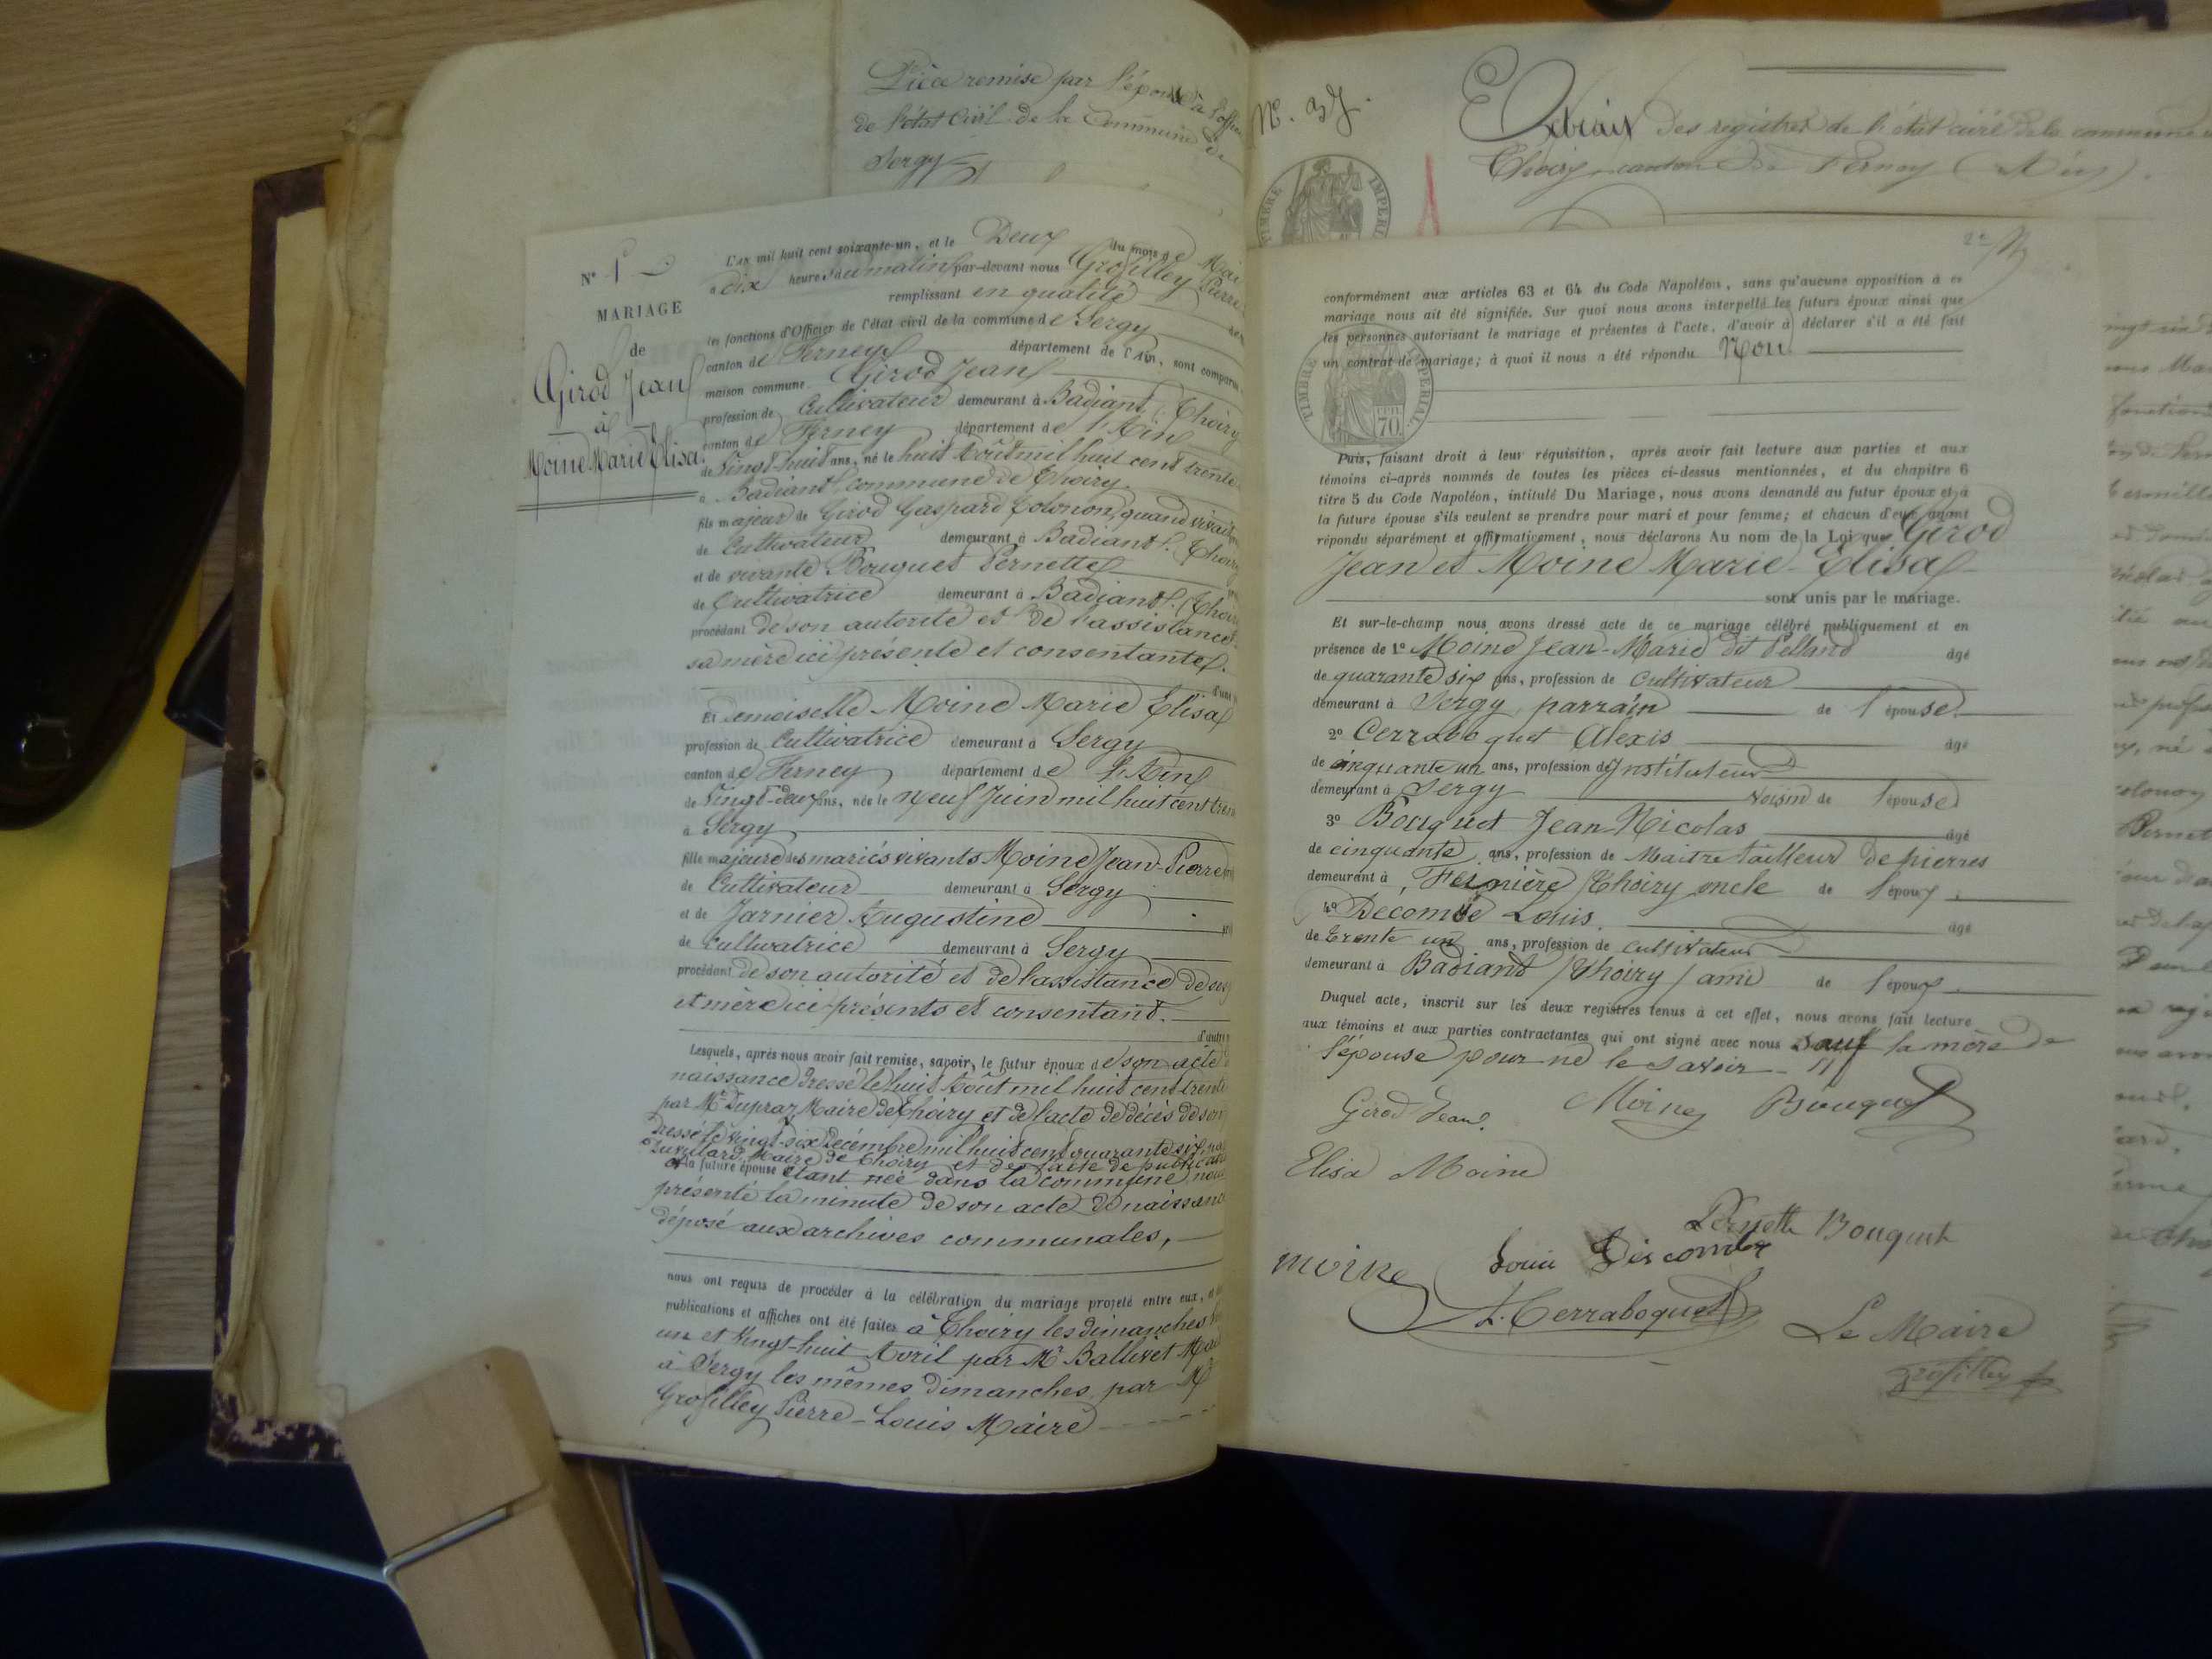 Pièce remise par l'épouse à l'offi
de l'état Civil de la Commune de
Sergy
N° 1
MARIAGE
de
Girod Jean
à
Moine Marie Elisa
L'an mil huit cent soixante-un, et le Deux du mois de Mai
à dix heures du matin par-devant nous Grosfilley Pierre
remplissant en qualité de
les fonctions d'Officier de l'état civil de la commune de Sergy
canton de Ferney département de l'Ain, sont comparus
maison commune. Girod Jean
profession de Cultivateur demeurant à Badiant, (Thoiry
canton de Ferney département de l'Ain
de vingt-huit ans, né le huit Août mil huit cent trente
à Badiant, commune de Thoiry.
fils majeur de Girod Gaspard Colonon, quand vivait
de Cultivateur demeurant à Badiant. (Thoiry
et de vivante Bouquet Pernette
de Cultivatrice demeurant à Badiant. (Thoiry
procédant de son autorité et de l'assistance
sa mère ici présente et consentante.
d'une
Et demoiselle Moine Marie Elisa
profession de Cultivatrice demeurant à Sergy
canton de Ferney département de l'Ain
de vingt-deux ans, née le neuf Juin mil huit cent tren
à Sergy
fille majeure des mariés vivants Moine Jean-Pierre
de Cultivateur demeurant à Sergy
et de Jarnier Augustine
de cultivatrice demeurant à Sergy
procédant de son autorité et de l'assistance de ses
et mère ici présents et consentant.
d'autre
Lesquels, après nous avoir fait remise, savoir, le futur époux de son acte
naissance dressé le huit Août mil huit cent trente
par Mr Dupraz Maire de Thoiry et de l'acte de décès de son
dressé le vingt-six Décembre mil huit cent quarante six par
Maire de Thoiry et de l'acte de publication
et la future épouse étant née dans la commune, nous
présenté la minute de son acte de naissance
déposé aux archives communales,
nous ont requis de procéder à la célébration du mariage projeté entre eux,
publications et affiches ont été faites à Thoiry les dimanches
un et vingt-huit Avril par Mr Ballivet Mai
à Sergy les mêmes dimanches par M
Grosfilley Pierre-Louis Maire
N°. 37.
Extrait des registres de l'état civil de la commune
Thoiry canton de Ferney (Ain).
TIMBRE IMPERIAL
2e
conformément aux articles 63 et 64 du Code Napoléon, sans qu'aucune opposition à ce
mariage nous ait été signifiée. Sur quoi nous avons interpellé les futurs époux ainsi que
les personnes autorisant le mariage et présentes à l'acte, d'avoir à déclarer s'il a été fait
un contrat de mariage; à quoi il nous a été répondu Non
TIMBRE IMPERIAL
70
Puis, faisant droit à leur réquisition, après avoir fait lecture aux parties et aux
témoins ci-après nommés de toutes les pièces ci-dessus mentionnées, et du chapitre 6
titre 5 du Code Napoléon, intitulé Du Mariage, nous avons demandé au futur époux et à
la future épouse s'ils veulent se prendre pour mari et pour femme; et chacun d'eux ayant
répondu séparément et affirmativement, nous déclarons Au nom de la Loi que Girod
Jean et Moine Marie-Elisa
sont unis par le mariage.
Et sur-le-champ nous avons dressé acte de ce mariage célébré publiquement et en
présence de 1° Moine Jean-Marie dit Pelland âgé
de quarante six ans, profession de Cultivateur
demeurant à Sergy, parrain de l'épouse.
2° Cerraboquet Alexis âgé
de cinquante un ans, profession d'Instituteur
demeurant à Sergy voisin de l'épouse
3° Bouquet Jean-Nicolas âgé
de cinquante ans, profession de Maitre tailleur de pierres
demeurant à Fesnière /Thoiry oncle de l'époux.
4° Decombe Louis. âgé
de trente un ans, profession de cultivateur
demeurant à Badiant /Thoiry/ ami de l'époux.
Duquel acte, inscrit sur les deux registres tenus à cet effet, nous avons fait lecture
aux témoins et aux parties contractantes qui ont signé avec nous sauf la mère de
l'épouse pour ne le savoir
Girod Jean. Moine Bouquet
Elisa Moine
Pernette Bouquet
moine Louis Descombe
A. Cerraboquet
Le Maire
Grosfilley